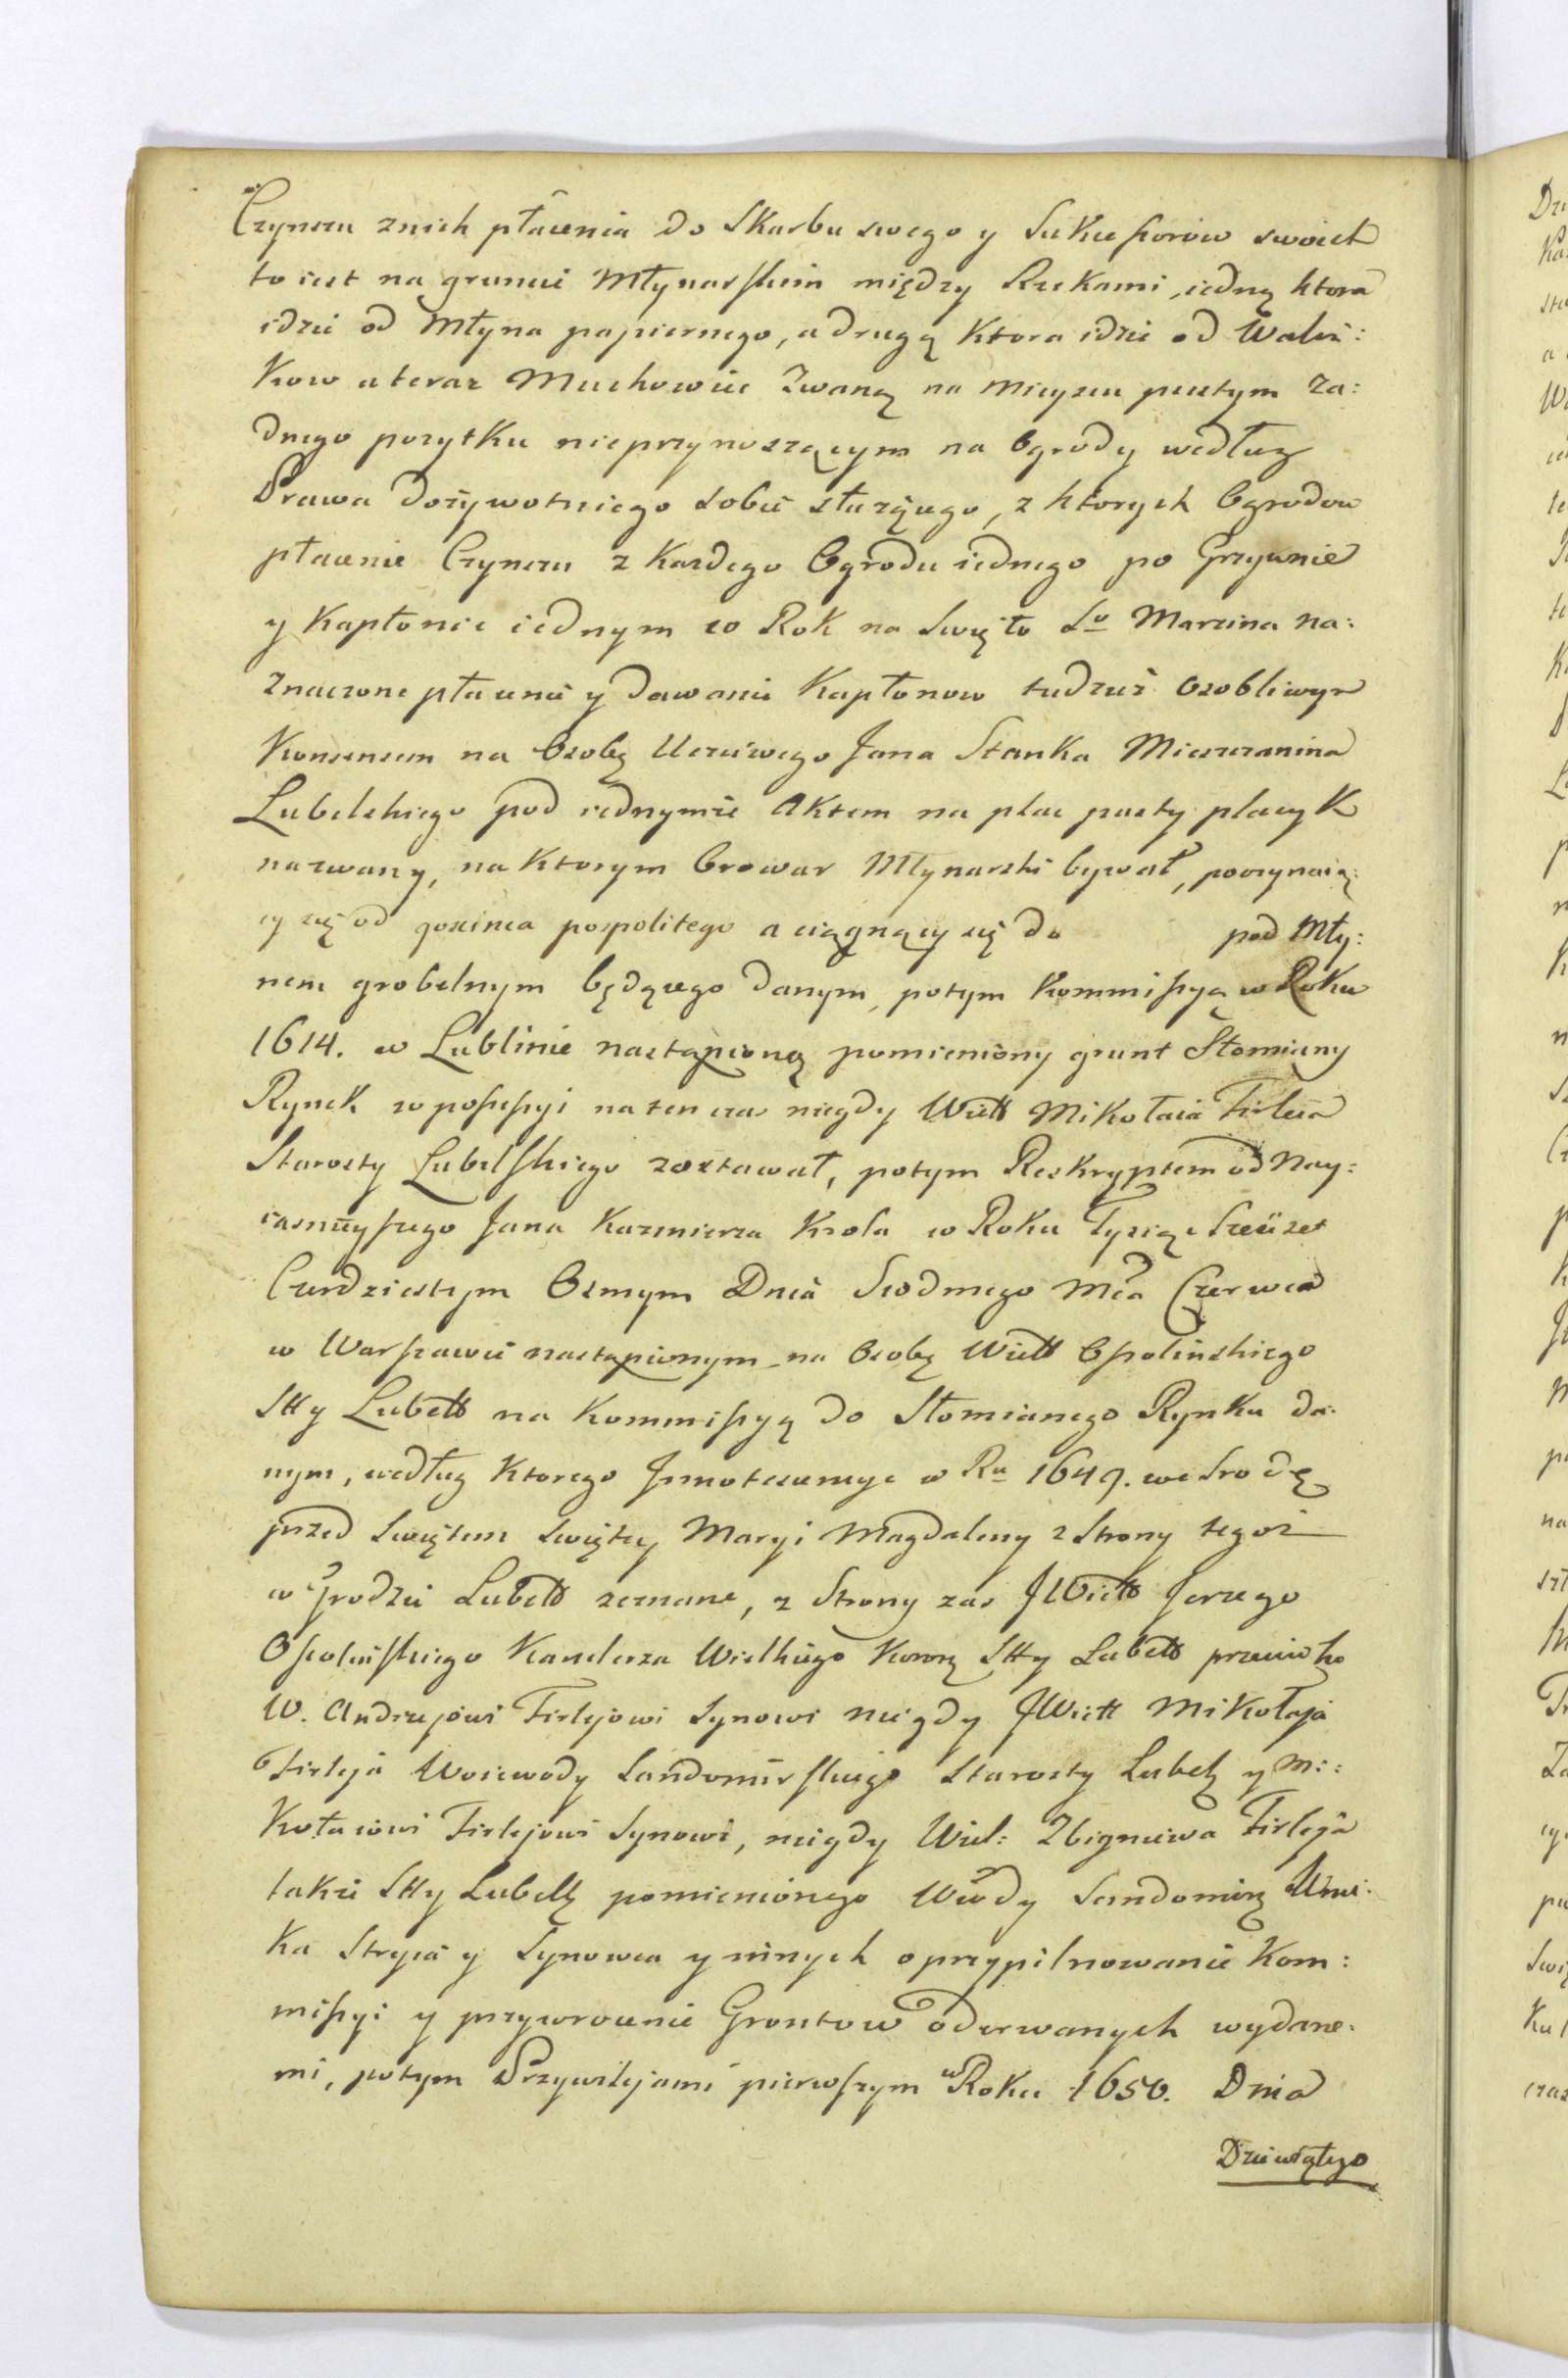 Czynszu znich płacenia do Skarbu swego y Sukcessorow swoich
to iest na gruncie Młynarskim między Rzekami, iedną ktora
idzie od Młyna papiernego, a drugą Ktora idzie od Walin:
Kow a teraz Muchowiec Zwaną na mieyscu pustym Za:
dnego pozytku nieprzynoszącym na Ogrody według
Prawa dozywotniego sobie służącego, z ktorych Ogrodow
płacenie Czynszu z Kazdego Ogrodu iednego po Grzywnie
y Kapłonie iednym w Rok na Swięto So Marcina na:
znaczone płacenie y dawanie Kapłonow tudzież osobliwym
Konsensem na Osobę Uczciwego Jana Stanka Mieszczanina
Lubelskiego pod iednymże Aktem na plac pusty placyk
nazwany, na Ktorym Browar Młynarski bywał, poczynaią:
cy się od goscinca pospolitego a ciągnący się do pod Mły:
nem grobelnym będącego danym, potym Kommissyą w Roku
1614. w Lublinie nastąpioną pomieniony grunt Słomiany
Rynek w possessyi na ten czas niegdy Wielł Mikołaia Firleia
Starosty Lubelskiego zostawał, potym Reskryptem od Nay:
iasnieyszego Jana Kazmierza Krola w Roku Tysiąc Szescset
Czerdziestym Osmym Dnia Siodmego Mca Czerwca
w Warszawie nastąpionym na Osobę Wielł Opolinskiego
Stty Lubell na Kommissyą do Słomianego Rynku da:
nym, według Ktorego Jnnotescencye w Ru 1649. we Srodę
przed Swiętem Swiętey Maryi Magdaleny z Strony tegoż
w Grodzie Lubell zeznane, z Strony zas JWielł Jerzego
Ossolinskiego Kanclerza Wielkiego Koronę Stty Lubell przeciwko
W. Andrzejowi Firlejowi Synowi niegdy JWielł Mikołaja
Firleja Woiewody Sandomirskiego Starosty Lubelz y Mi:
Kołaiowi Firlejowi Synowi, niegdy Wiel: Zbigniewa Firleja
także Stty Lubellz pomienionego Wdy Sandomirz Wnu:
Ka Stryia y Synowca y innych o przypilnowanie Kom:
missyi y przywrocenie Grontow oderwanych wydane:
mi, potym Przywilejami pierwszym w Roku 1650. Dnia
Dziewiątego